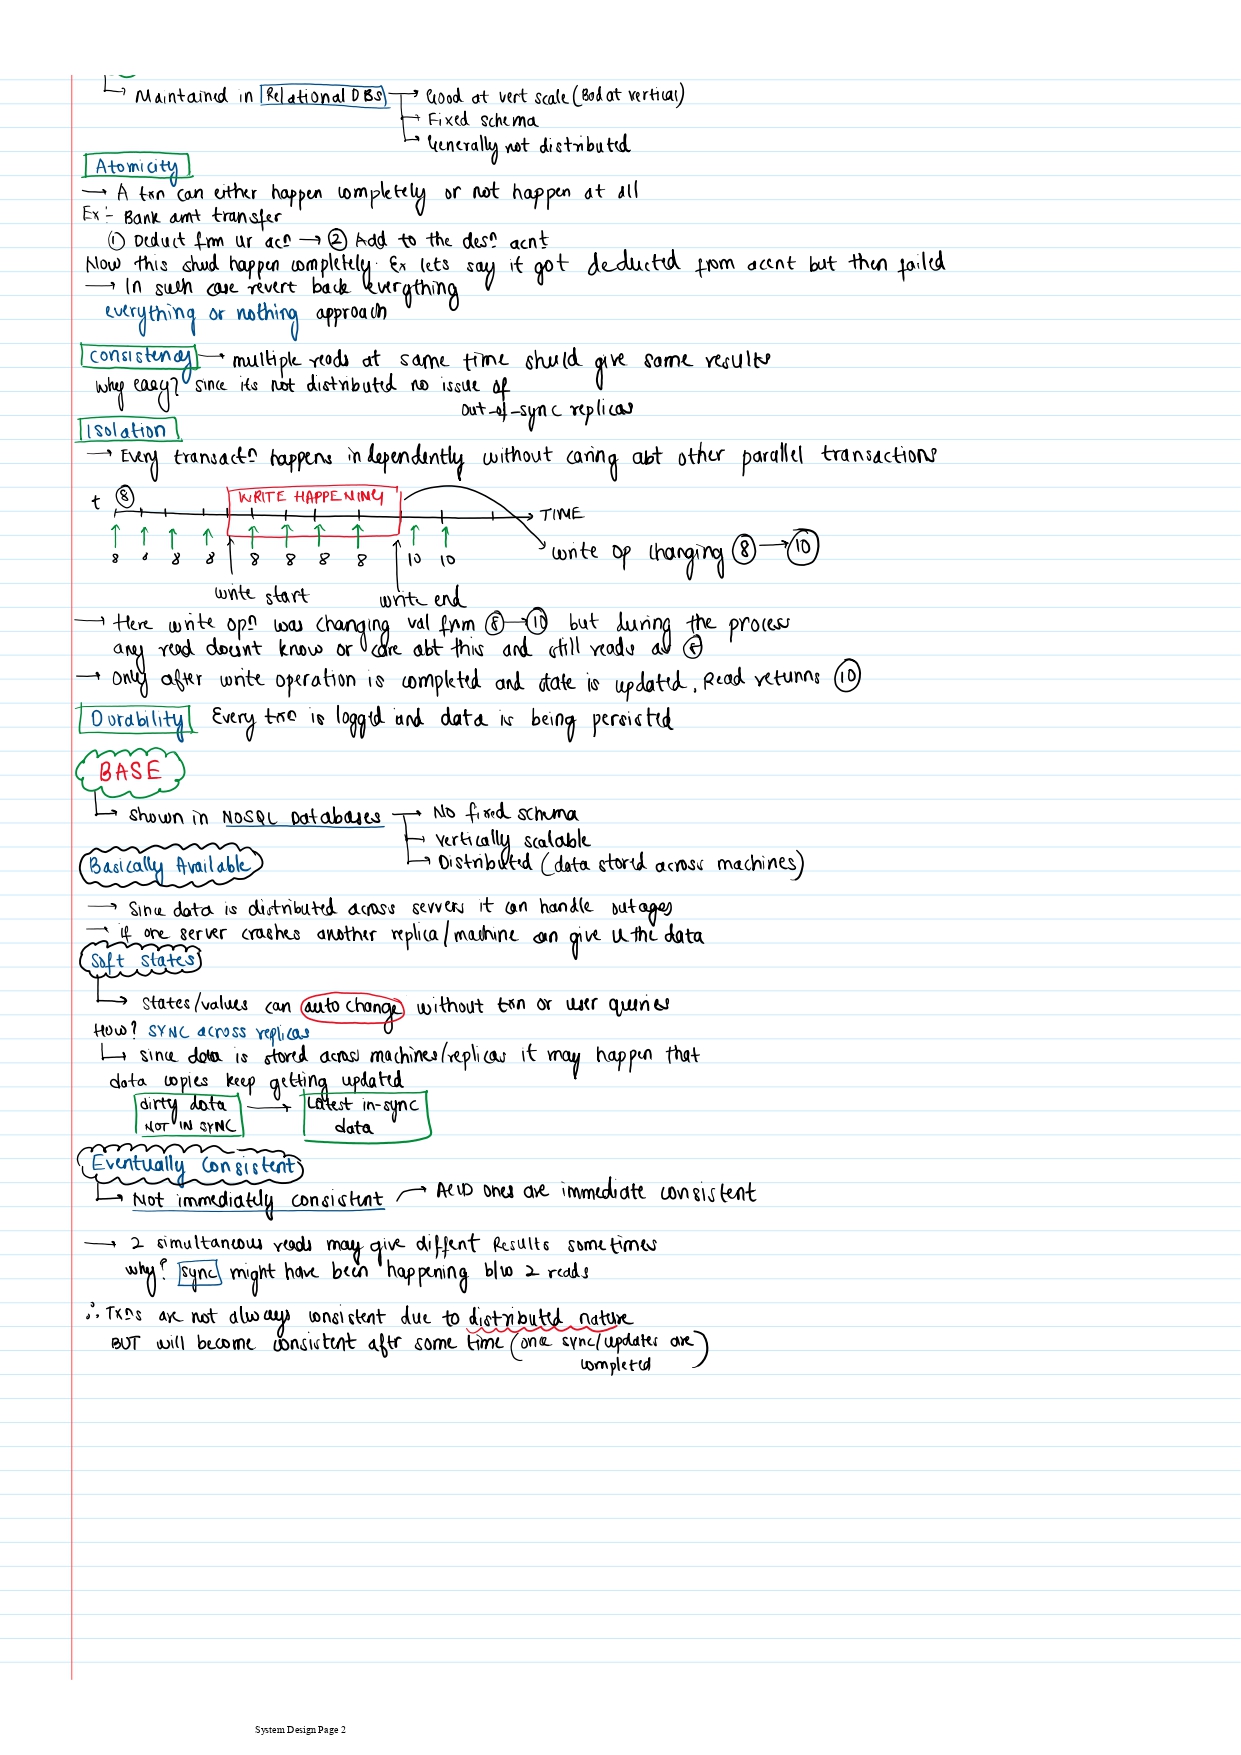 Maintained in Relational DBs → Good at vert scale (Bad at vertical)
→ Fixed schema
→ Generally not distributed
Atomicity
→ A txn can either happen completely or not happen at all
Ex:- Bank amt transfer
① Deduct frm ur acn → ② Add to the desn acnt
Now this shud happen completely. Ex lets say it got deducted from accnt but then failed
→ In such case revert back everything
everything or nothing approach
Consistency → multiple reads at same time should give same results
Why easy? since its not distributed no issue of
out-of-sync replicas
Isolation
→ Every transactn happens independently without caring abt other parallel transactions
t ⑧ WRITE HAPPENING
TIME
8 8 8 8 8 8 8 10 10
write op changing ⑧ → ⑩
write start write end
→ Here write opn was changing val frm ⑧ → ⑩ but during the process
any read doesnt know or care abt this and still reads as ⑧
→ Only after write operation is completed and state is updated, Read returns ⑩
Durability Every txn is logged and data is being persisted
BASE
→ shown in NOSQL Databases → No fixed schema
→ vertically scalable
→ Distributed (data stored across machines)
Basically Available
→ Since data is distributed across servers it can handle outages
→ if one server crashes another replica/machine can give u the data
Soft States
→ States/values can auto change without txn or user queries
How? SYNC across replicas
→ since data is stored across machines/replicas it may happen that
data copies keep getting updated
dirty data → Latest in-sync
NOT IN SYNC data
Eventually Consistent
→ Not immediately consistent → ACID ones are immediate consistent
→ 2 simultaneous reads may give diffent Results sometimes
why? sync might have been happening b/w 2 reads
∴ Txns are not always consistent due to distributed nature
BUT will become consistent aftr some time (once sync/updates are
completed)
System Design Page 2